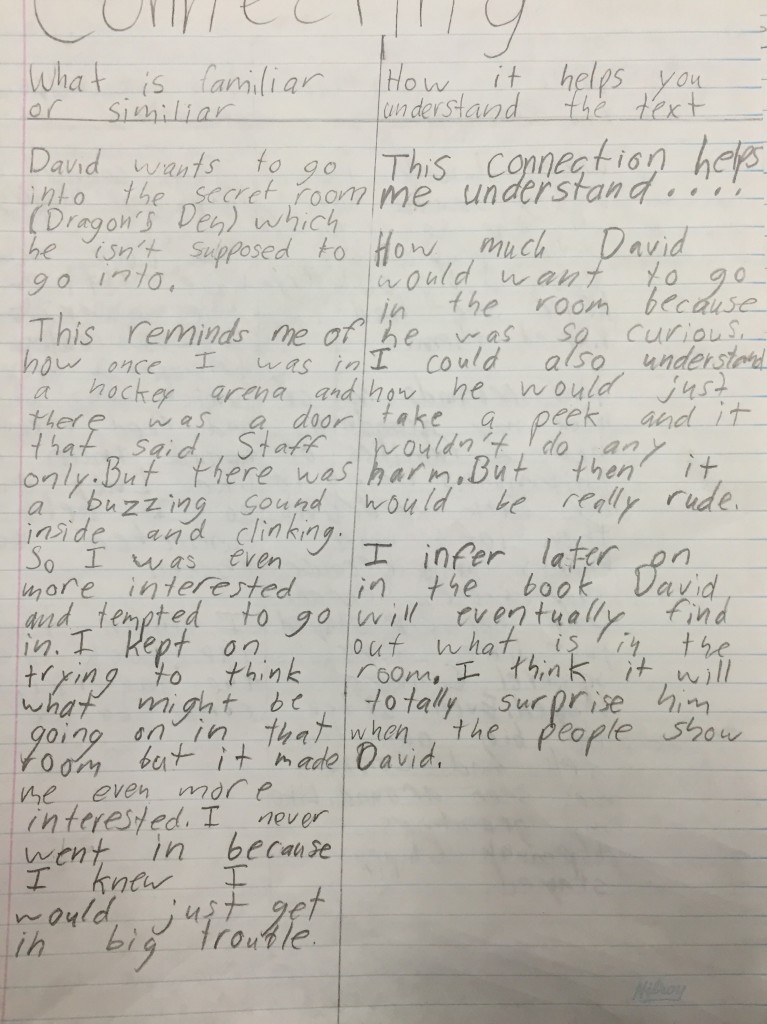 Connecting
What is familiar
or similiar
David wants to go
into the secret room
(Dragon's Den) which
he isn't supposed to
go into.
This reminds me of
how once I was in
a hockey arena and
there was a door
that said Staff
only. But there was
a buzzing sound
inside and clinking.
So I was even
more interested
and tempted to go
in. I kept on
trying to think
what might be
going on in that
room but it made
me even more
interested. I never
went in because
I knew I
would just get
in big trouble.
How it helps you
understand the text
This connection helps
me understand....
How much David
would want to go
in the room because
he was so curious.
I could also understand
how he would just
take a peek and it
wouldn't do any
harm. But then it
would be really rude.
I infer later on
in the book David
will eventually find
out what is in the
room. I think it will
totally surprise him
when the people show
David.
Hilroy